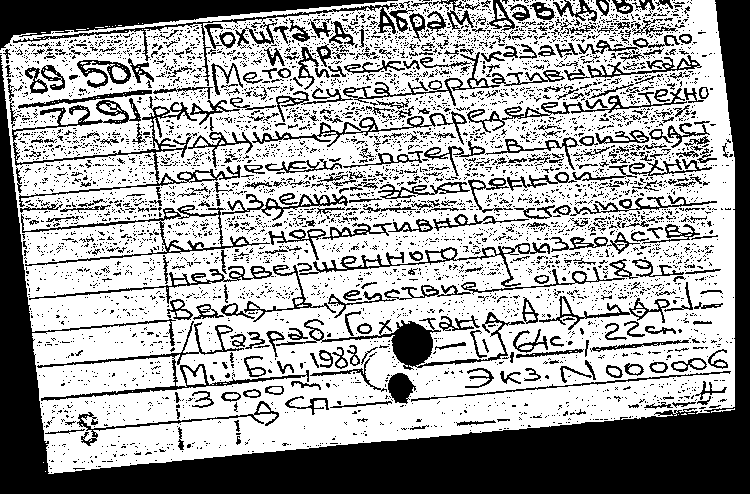 Гохштанд, Абрам Давидович
и др.
89-50к
7291
Методические указания о по-
рядке расчета нормативных каль-
куляций для определения техно-
логических потерь в производст-
ве изделий электронной техни-
ки и нормативной стоимости
незавершенного производства:
Ввод. в действие с 01.01.89г.
/[Разраб. Гохштанд А.Д. и др.].-
М.: Б.и., 1988. - [1], 64с.; 22см. -
3000 Экз. N 000006
Дсп.
88